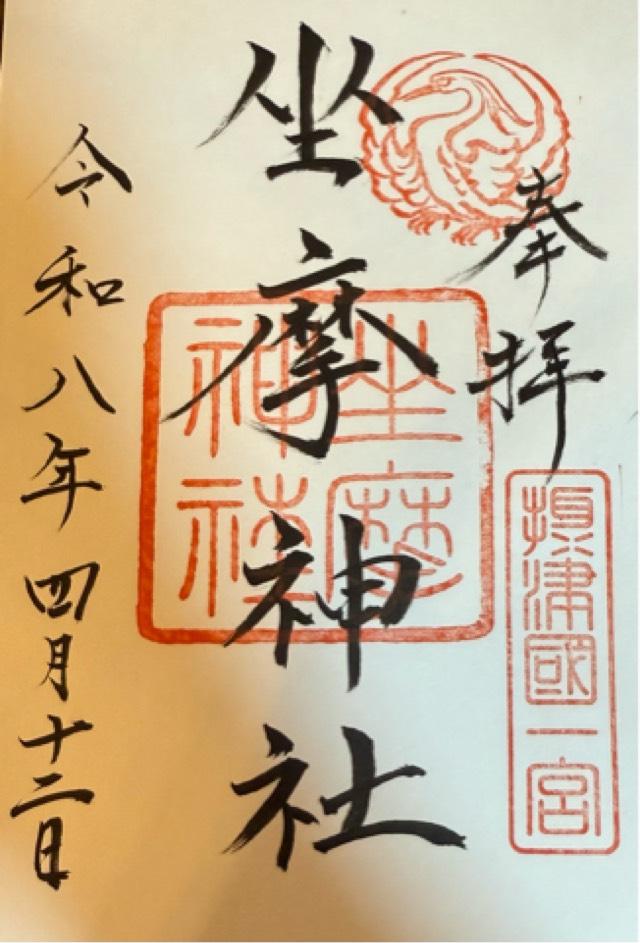 奉拝
摂津國一宮
坐摩神社
坐摩神社
令和八年四月十二日